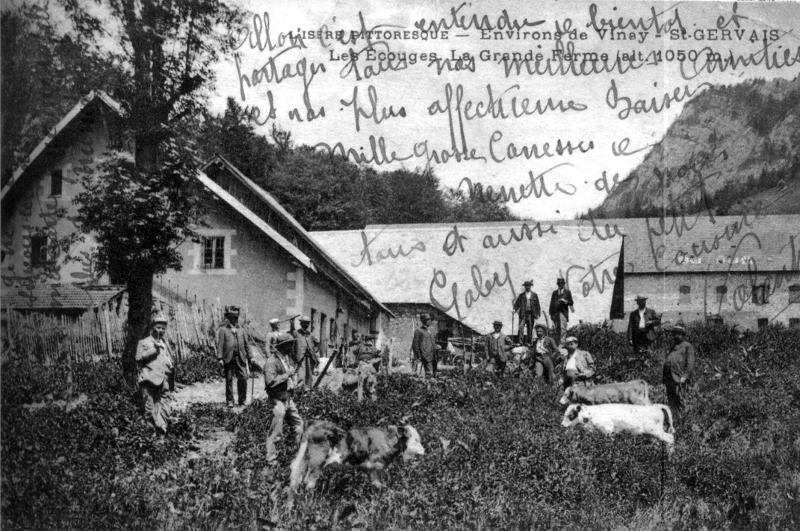 L'ISERE PITTORESQUE — Environs de Vinay - St-GERVAIS
Les Ecouges. La Grande Ferme (alt. 1050 m.)
Allons c'est entendu je bientôt et
partagez tous nos meilleures Amitiés
et nos plus affectueux Baisers
Mille grosse Caresses
de nous
tous et aussi du petit
Gaby Votre cousine